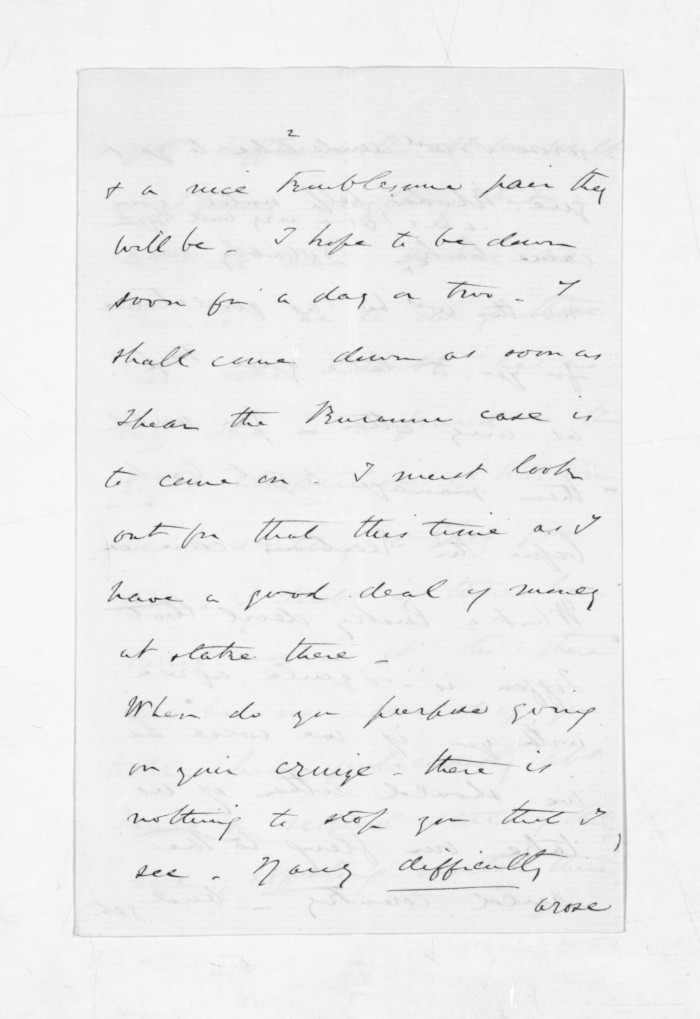 2
& a nice troublesome pair they
will be - I hope to be down
soon for a day or two - I
shall come down as soon as
I hear the case is
to come on. I must look
out for that this time as I
have a good deal of money
at stake there -
When do you purpose going
on your cruize - there is
nothing to stop you that I
see - If any difficulty
arose